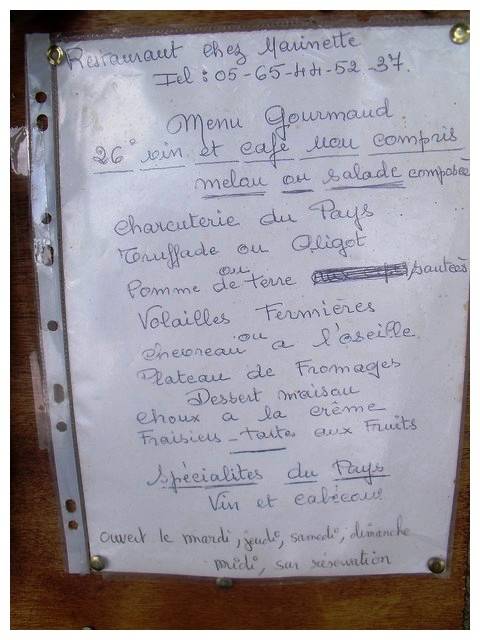 Restaurant chez Marinette
Tel : 05-65-44-52-37.
Menu Gourmand.
26° vin et café non compris
melon ou salade composée
Charcuterie du Pays
Truffade ou Aligot
ou
Pomme de terre sautées
Volailles Fermières
ou
chevreau a l'oseille
Plateau de Fromages
Dessert maison
choux a la crème
Fraisiers - tartes aux Fruits
Spécialites du Pays
Vin et cabécous
ouvert le mardi, jeudi, samedi, dimanche
midi, sur réservation